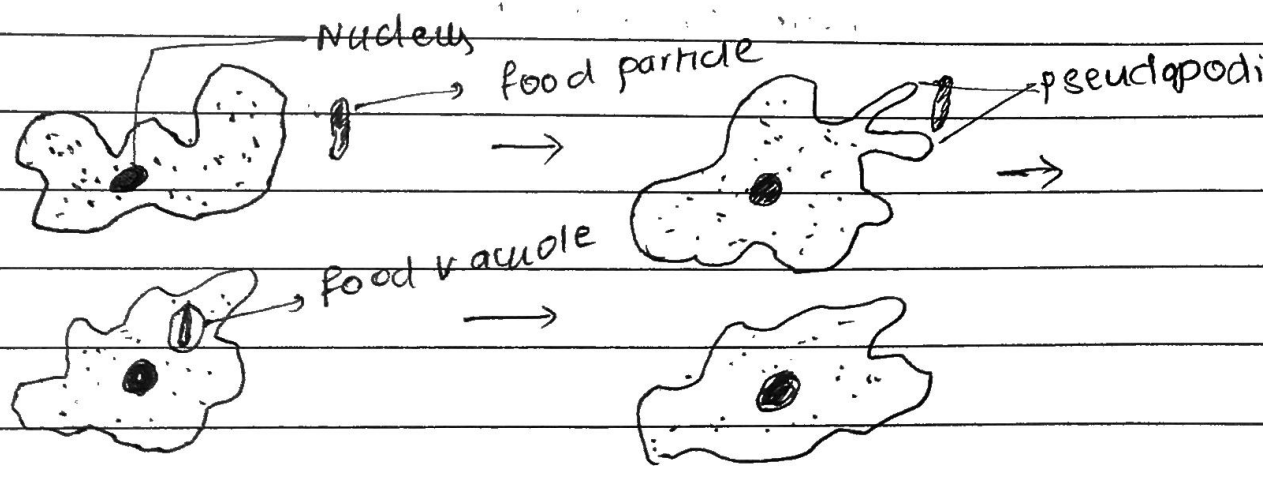 Nucleus
food particle
pseudopodi
food vacuole